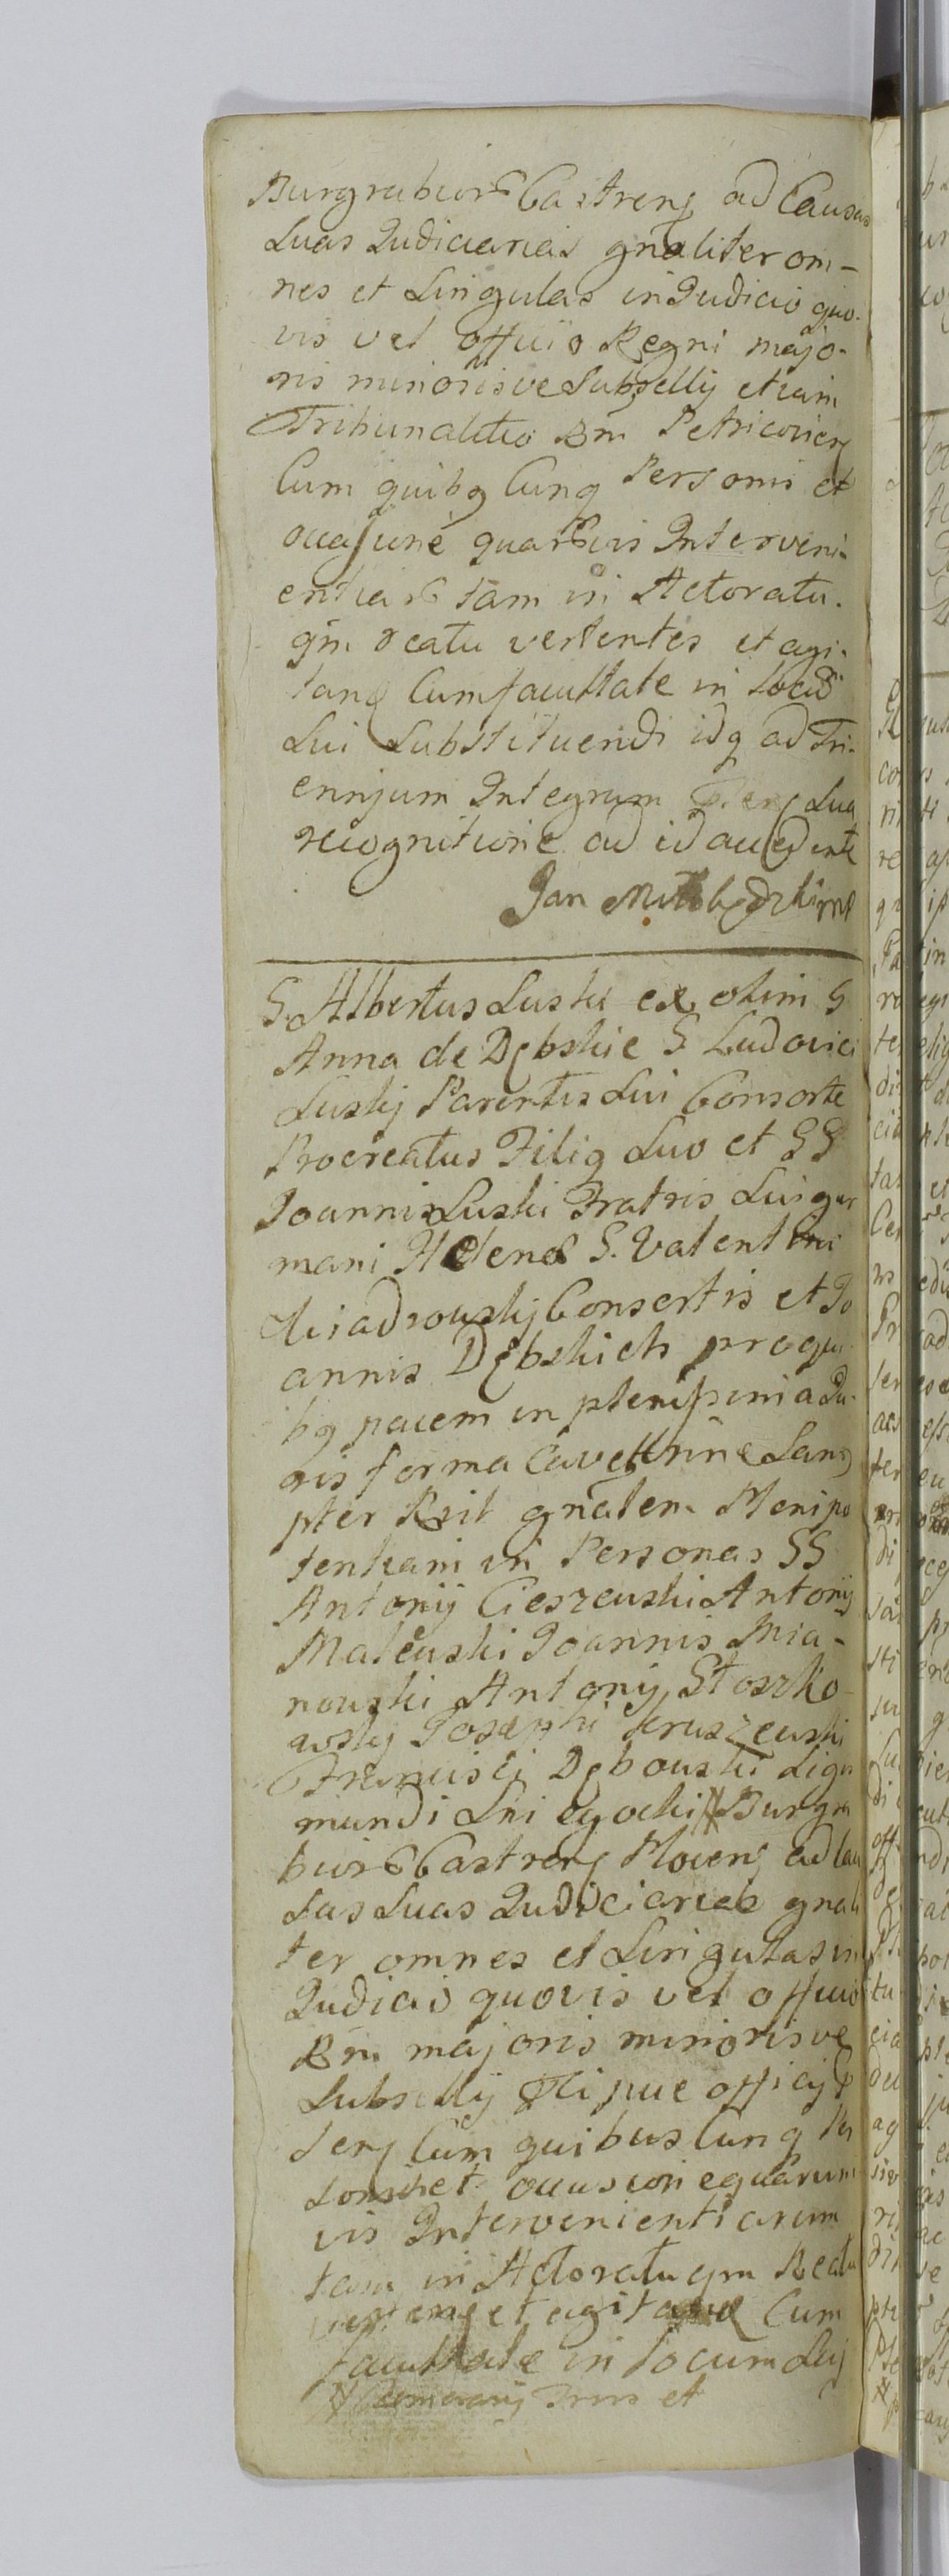 Burgrabior Castren ad Causas
Suas Judiciarias gnaliter om-
nes et Singulas in Judicio quo-
vis vel officio Regni majo-
ris minorisve Subsellij etiam
Tribunalitio Rni Petricovien
Cum quibq Cunq Personis et
occasione quarvis Interveni-
entiar tam in Actoratu
qm reatu vertentes et agi-
tand Cum facultate in locu
Sui Substituendi idq ad Tri-
ennium Integrum Sua
recognitione ad id accedente
Jan
S. Albertus Luski ex olim G
Anna de Dębskie G Ludovici
Luskij Parentis Sui Consorte
Procreatus Filig Suo et GG
Joannis Luski Fratris Sui ger
mani Helenæ G. Valentini
Consortis et Jo
annis Dębskich pro qui
bq pacem in plenissima Ju-
ris forma Cavet
pter Rsit gnalem Plenipo
tentiam in Personas GG
Antonij Cieszewski Antonij
Malewski Joannis Mia-
nowski Antonij Stoszko
wskij Josephi Kruszewski
Francisci Dębowski Sigis
mundi # Burgra
bior Castren Plocen ad Cau
sas Suas Judiciarias gnali
ter omnes et Singulas in
Judicio quovis vel officio
Rni majoris minorisve
Subsellij officij
Cum quibus Cunq Per
sonis et occasione quarum
vis Intervenientiarum
tam in Actoratu qm Reatu
verten et agitand Cum
facultate in locum Sui
# et